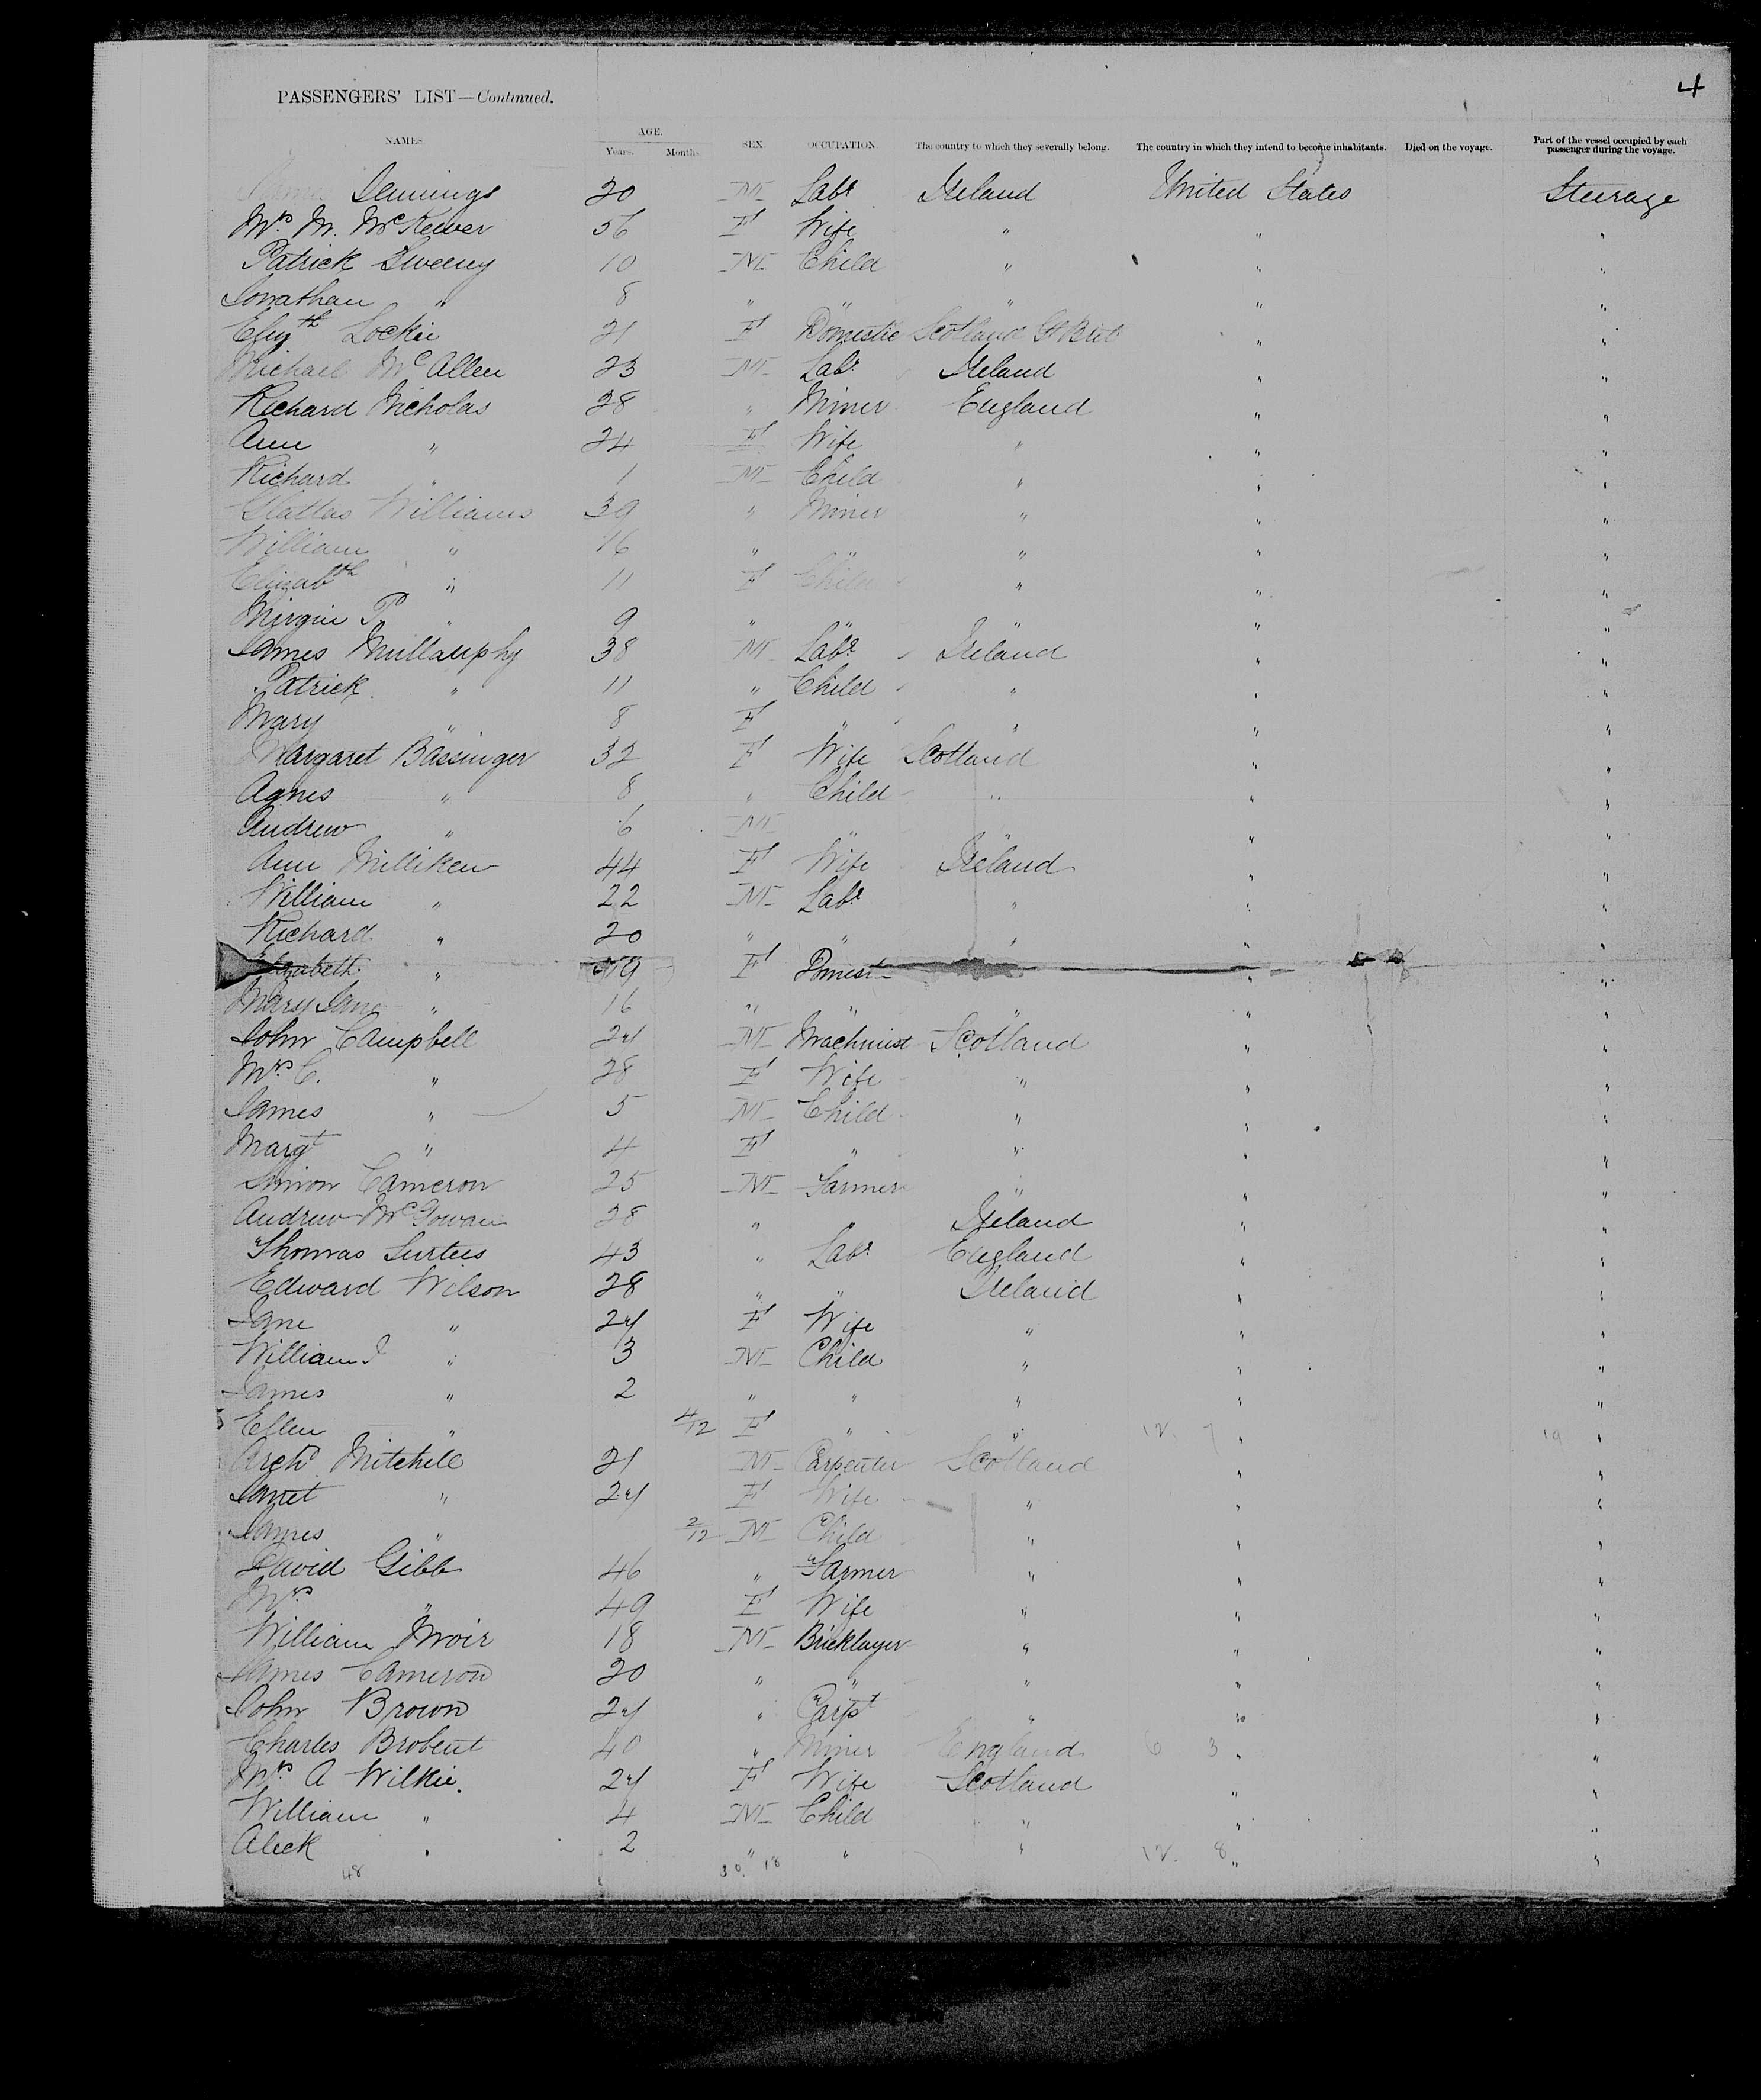 4
PASSENGERS' LIST—Continued.
NAMES AGE. Years. Months. SEX. OCCUPATION. The country to which they severally belong. The country in which they intend to become inhabitants. Died on the voyage. Part of the vessel occupied by each passenger during the voyage.
Jennings 20 M Labr Ireland United States Steerage
Mrs. M. McKeever 56 F Wife " " "
Patrick Sweeny 10 M Child " " "
Jonathan " 8 " " " " "
Elizth Lockie 21 F Domestic Scotland Gt Brit " "
Michael McAllen 23 M Labr Ireland " "
Richard Nicholas 28 " Miner England " "
Ann " 24 F Wife " " "
Richard " 1 M Child " " "
Williams 39 " Miner " " "
William " 16 " " " " "
Elizabth " 11 F Child " " "
P. " 9 " " " " "
James Mullauphy 38 M Labr Ireland " "
Patrick " 11 " Child " " "
Mary " 8 F " " " "
Margaret Bassinger 32 F Wife Scotland " "
Agnes " 8 " Child " " "
Andrew " 6 M " " " "
Ann Milliken 44 F Wife Ireland " "
William " 22 M Labr " " "
Richard " 20 " " " " "
Elizabeth " 19 F Domest " "
Mary Jane " 16 " " " " "
John Campbell 24 M Machinist Scotland " "
Mrs C. " 28 F Wife " " "
James " 5 M Child " " "
Margt " 4 F " " " "
Simon Cameron 25 M Farmer " " "
Andrew McGowan 28 " " Ireland " "
Thomas Surtees 43 " Labr England " "
Edward Wilson 28 " " Ireland " "
Jane " 24 F Wife " " "
William J " 3 M Child " " "
James " 2 " " " " "
Ellen " 4/12 F " " 12. 7 " 19 "
Archd Mitchell 21 M Carpenter Scotland " "
Janet " 24 F Wife " " "
James " 2/12 M Child " " "
David Gibb 46 " Farmer " " "
Mrs " 49 F Wife " " "
William Moir 18 M Bricklayer " " "
James Cameron 20 " " " " "
John Brown 24 " Carpt " " "
Charles Brobent 40 " Miner England 6 3 " "
Mrs. A Wilkie. 24 F Wife Scotland " "
William " 4 M Child " " "
Aleck " 2 " " " 12. 8 " "
48 30. 18